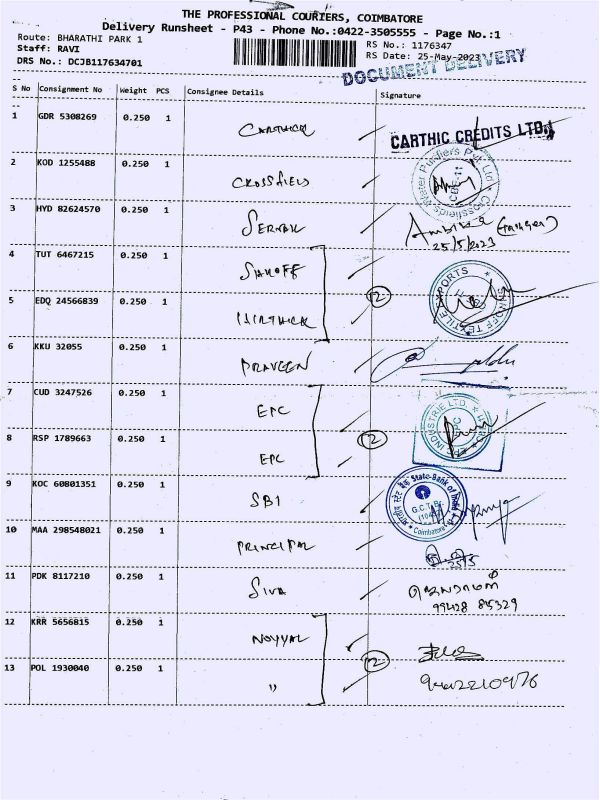 THE PROFESSIONAL COURIERS, COIMBATORE
Delivery Runsheet - P43 - Phone No.:0422-3505555 - Page No.:1
Route: BHARATHI PARK 1
RS No.: 1176347
Staff: RAVI
RS Date: 25-May-2023
DRS No.: DCJB117634701
DOCUMENT DELIVERY
S No Consignment No Weight PCS Consignee Details Signature
1 GDR 5308269 0.250 1 CARTHICK CARTHIC CREDITS LTD.,
2 KOD 1255488 0.250 1 CROSSFIELD Crossfields Water Purifiers Pvt. Ltd CBE-11
3 HYD 82624570 0.250 1
25/5/2023
4 TUT 6467215 0.250 1 SAROFF SAROFF TEXTILE EXPORTS
5 EDQ 24566839 0.250 1 HIRTHICK 2
6 KKU 32055 0.250 1 PRAVEEN
7 CUD 3247526 0.250 1 EPC EPC INDUSTRIE LTD.
8 RSP 1789663 0.250 1 EPC 2
9 KOC 60801351 0.250 1 SBI State Bank of India G.C.T. Br. Coimbatore
10 MAA 298548021 0.250 1 PRINCIPAL 25/5
11 PDK 8117210 0.250 1 SIVA
99428 85329
12 KRR 5656815 0.250 1 NOYYAL
13 POL 1930040 0.250 1 " 2 9442210976